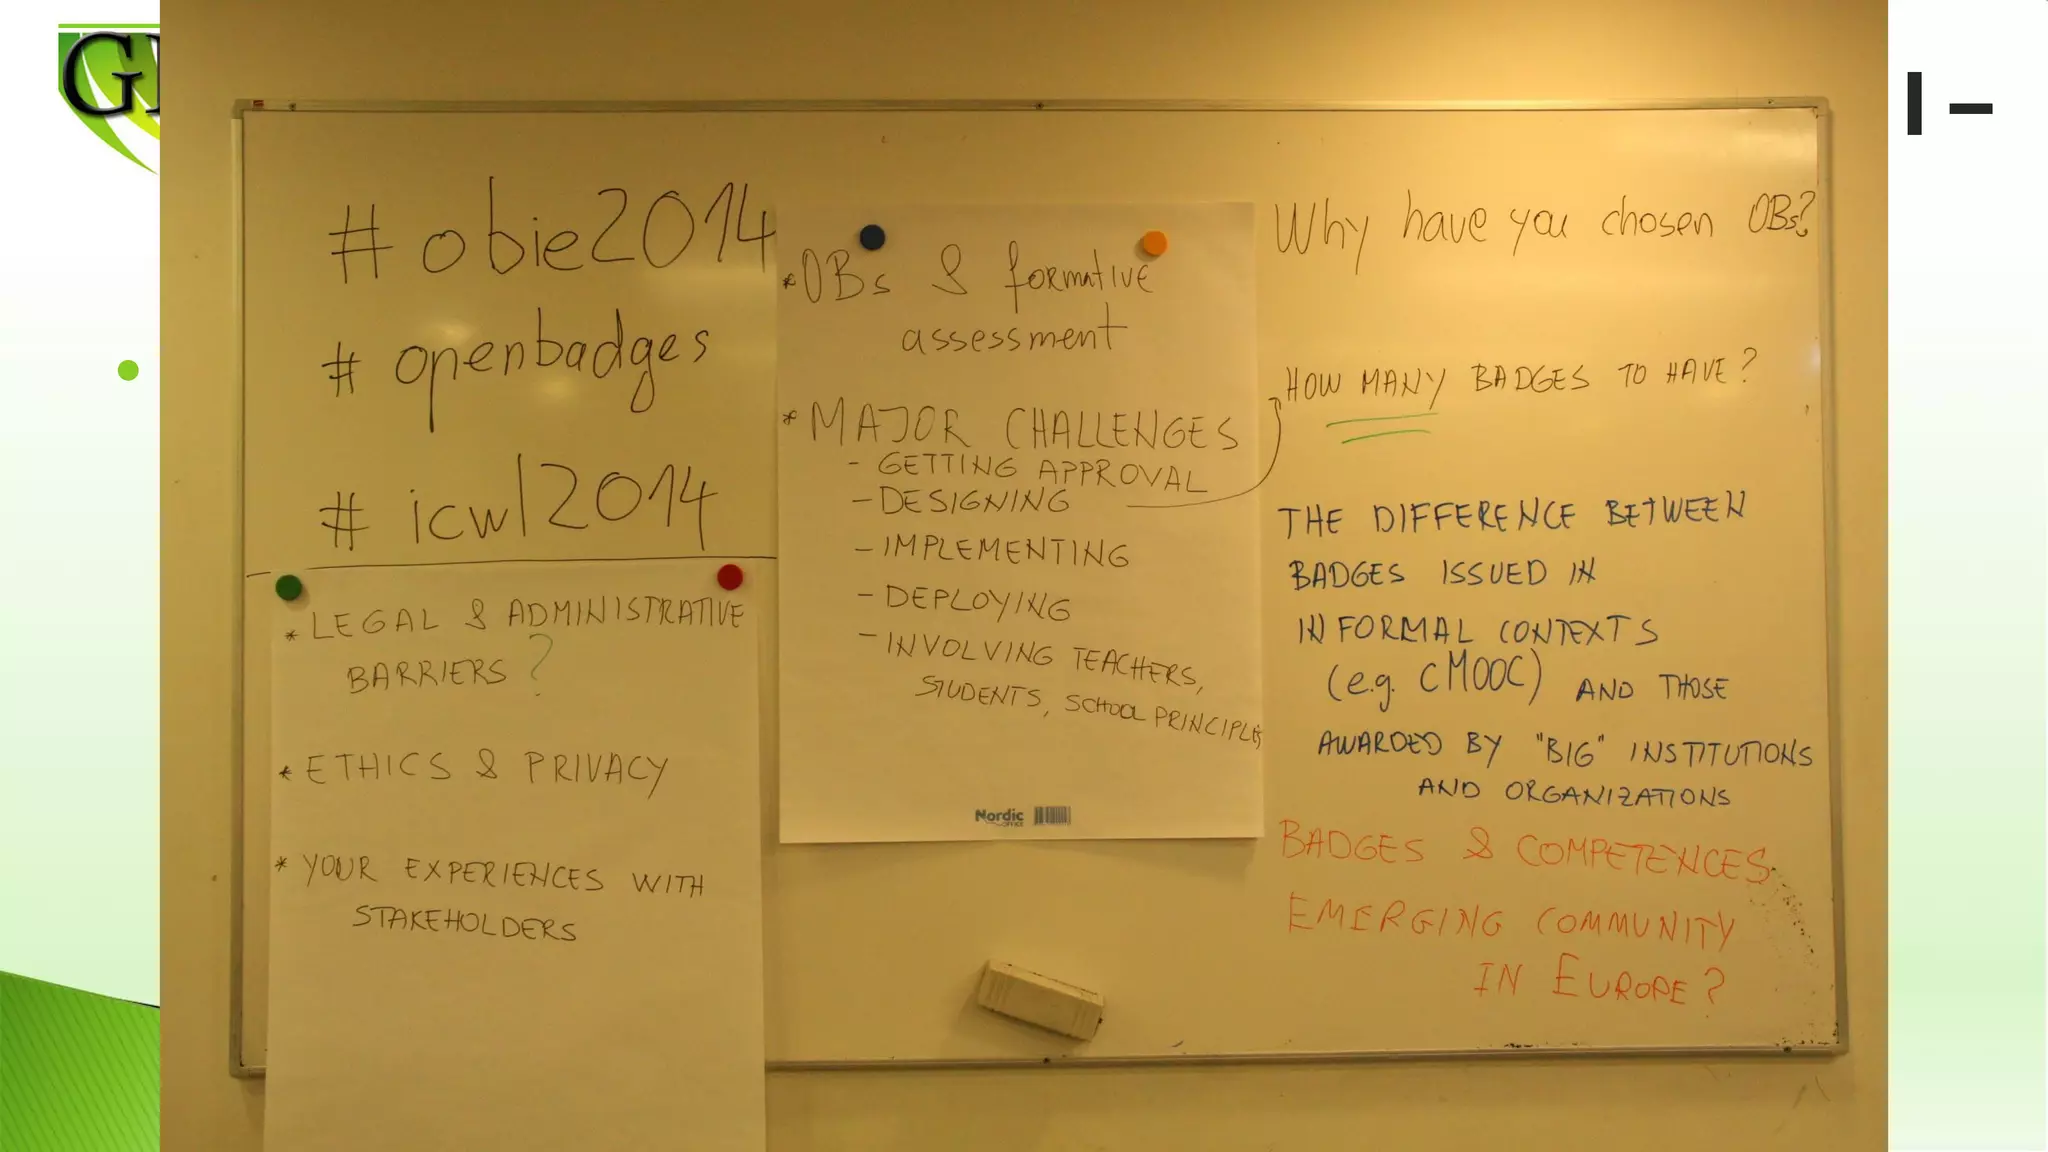 # obie2014
# openbadges
# icwl2014
* LEGAL & ADMINISTRATIVE
BARRIERS?
* ETHICS & PRIVACY
* YOUR EXPERIENCES WITH
STAKEHOLDERS
* OBs & formative
assessment
* MAJOR CHALLENGES
- GETTING APPROVAL
- DESIGNING
- IMPLEMENTING
- DEPLOYING
- INVOLVING TEACHERS,
STUDENTS, SCHOOL PRINCIPLES
Nordic
OFFICE
Why have you chosen OBs?
HOW MANY BADGES TO HAVE?
THE DIFFERENCE BETWEEN
BADGES ISSUED IN
INFORMAL CONTEXTS
(e.g. cMOOC) AND THOSE
AWARDED BY "BIG" INSTITUTIONS
AND ORGANIZATIONS
BADGES & COMPETENCES
EMERGING COMMUNITY
IN EUROPE?